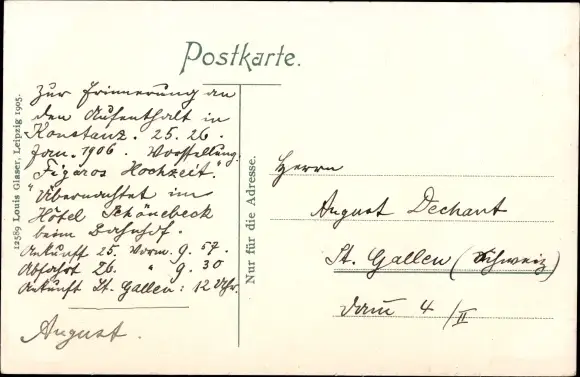 Postkarte.
Zur Erinnerung an
den Aufenthalt in
Konstanz. 25. 26.
Jan. 1906. Vorstellung:
"Figaros Hochzeit."
Übernachtet im
Hôtel Schönebeck
beim Bahnhof.
Ankunft 25. Vorm. 9. 57.
Abfahrt 26. " 9. 30
Ankunft St. Gallen: 12 Uhr.
August.
12589 Louis Glaser, Leipzig 1905.
Nur für die Adresse.
Herrn
August Dechant
St. Gallen (Schweiz)
4/II